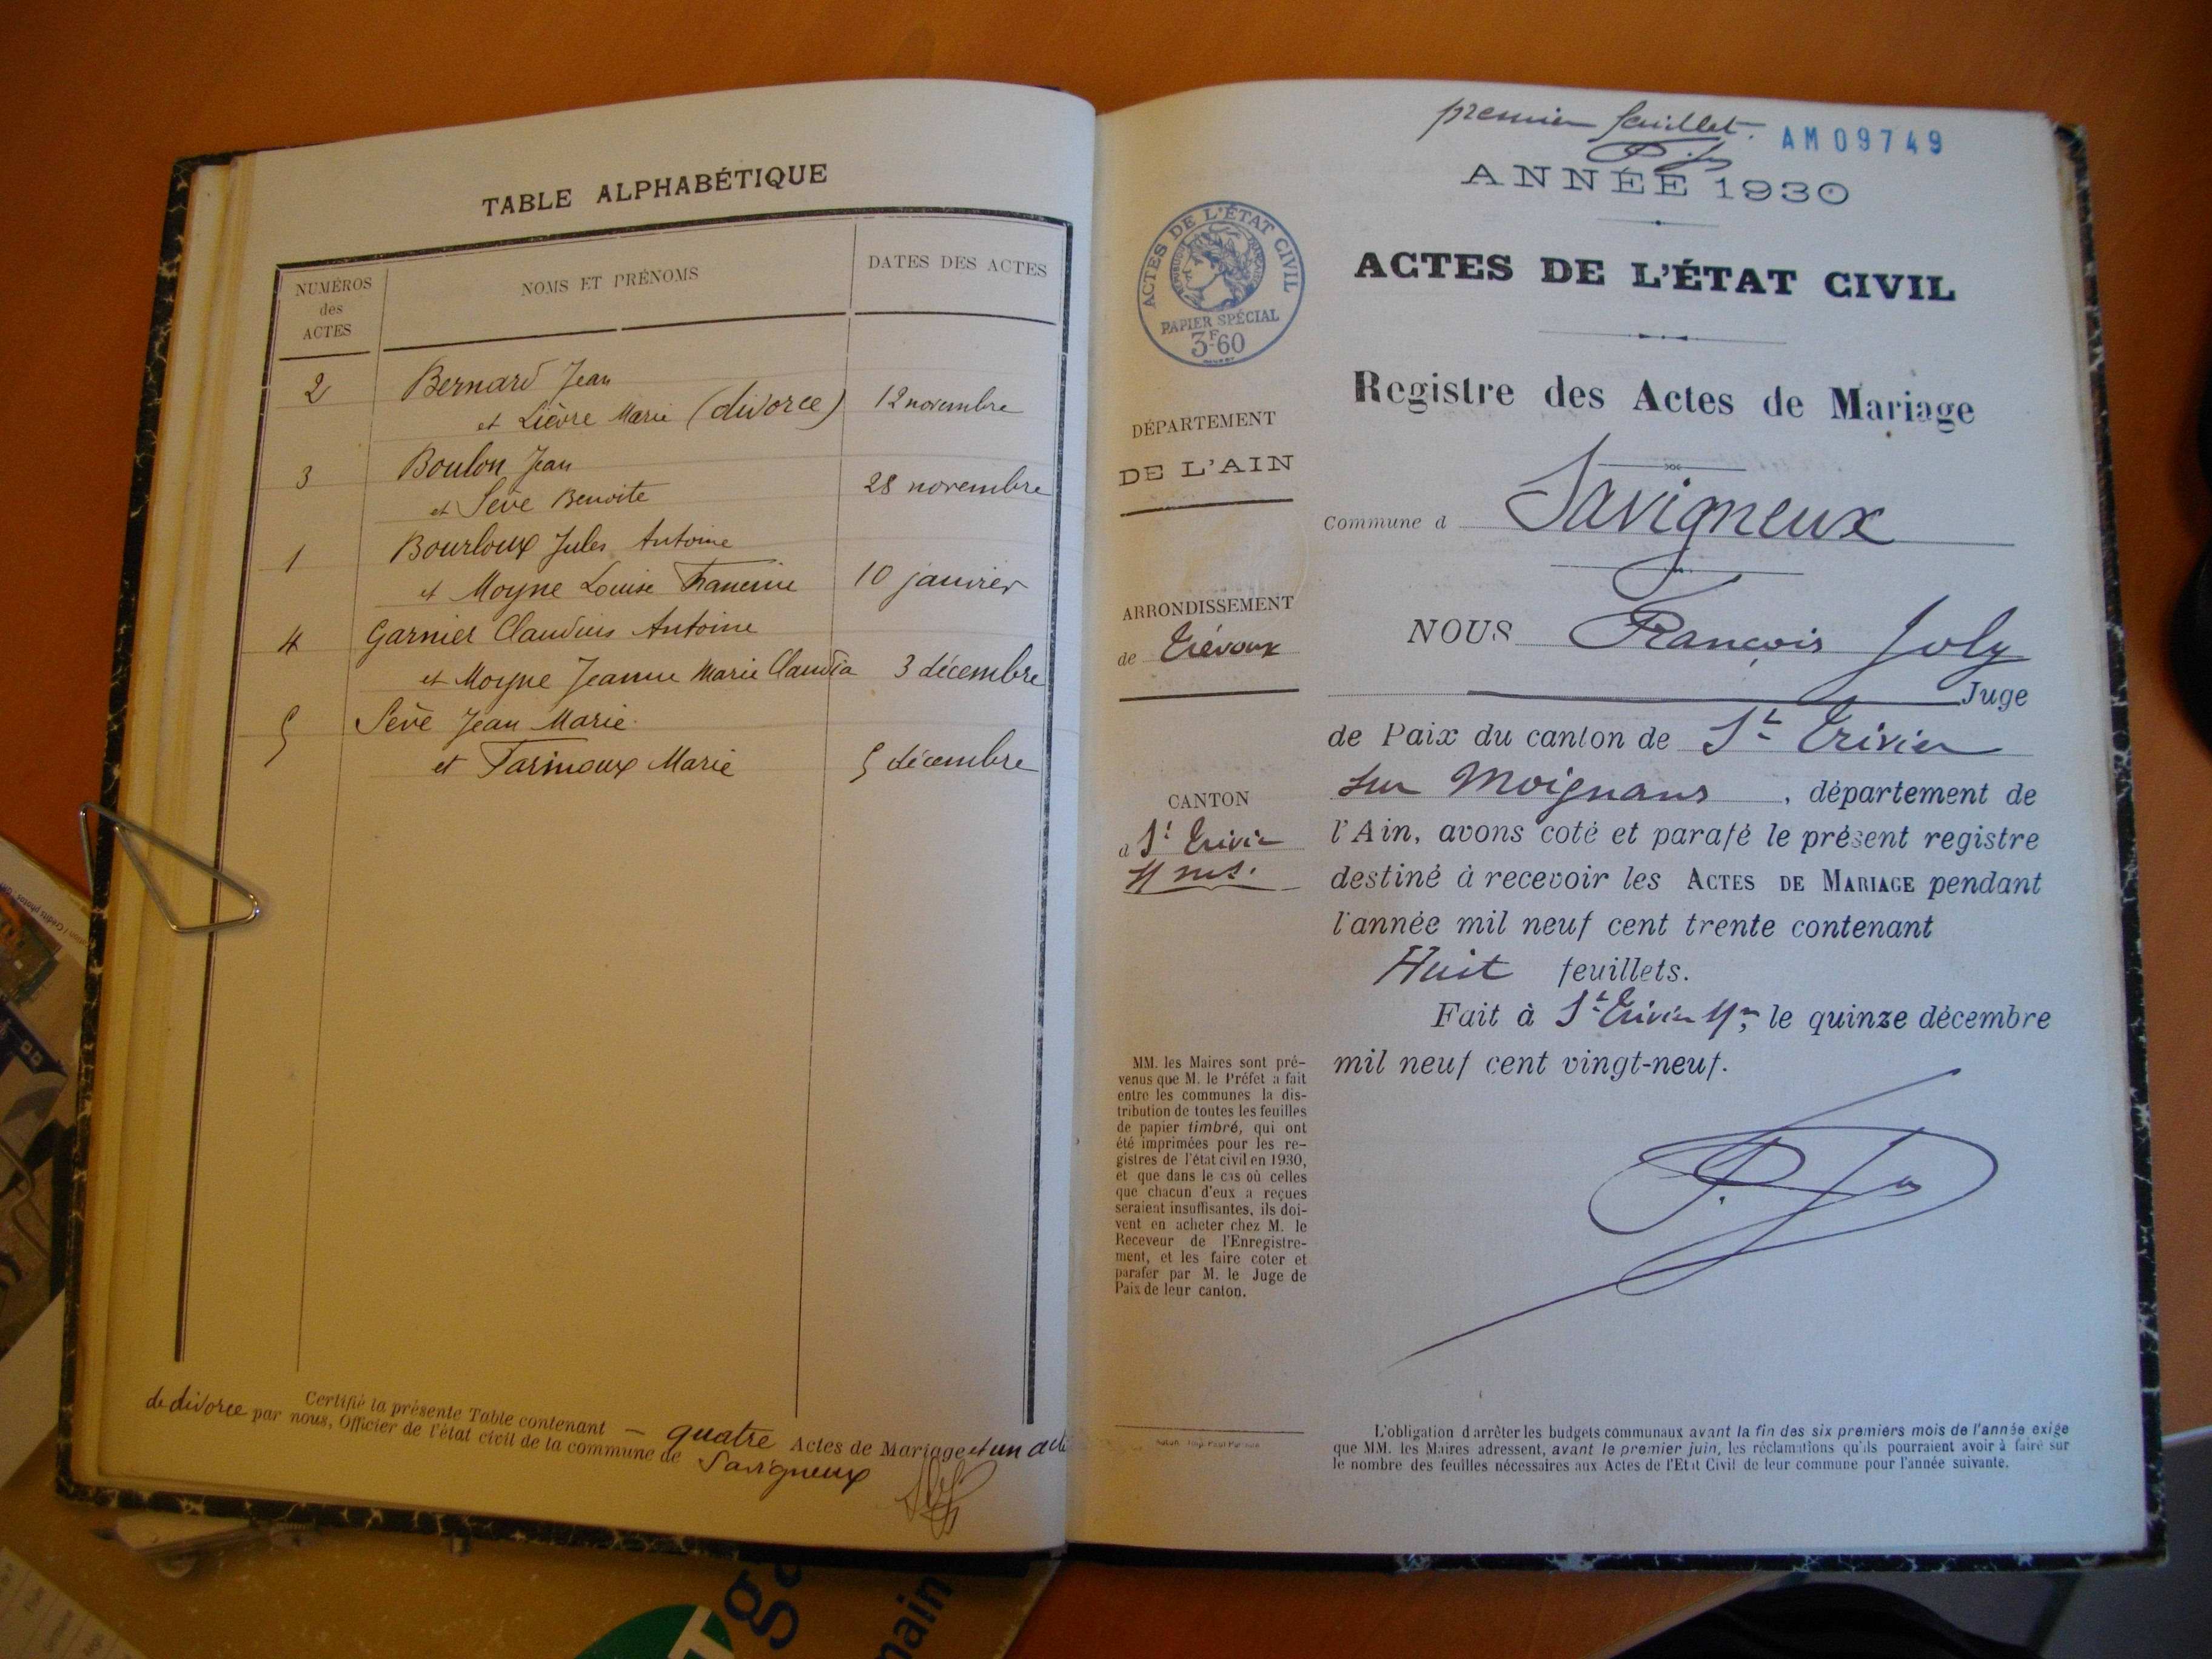 TABLE ALPHABÉTIQUE
NUMÉROS
des
ACTES
NOMS ET PRÉNOMS
DATES DES ACTES
2 Bernard Jean
et Lièvre Marie (divorce) 12 novembre
3 Boulon Jean
et Sève Benoite 28 novembre
1 Bourloux Jules Antoine
et Moyne Louise Francine 10 janvier
4 Garnier Claudius Antoine
et Moyne Jeanne Marie Claudia 3 décembre
5 Sève Jean Marie
et Farinoux Marie 5 décembre
Certifié la présente Table contenant — quatre Actes de Mariage et un acte
de divorce par nous, Officier de l'état civil de la commune de
Savigneux
premier feuillet.
AM09749
ANNÉE 1930
ACTES DE L'ÉTAT CIVIL
RÉPUBLIQUE FRANÇAISE
PAPIER SPÉCIAL
3F60
ACTES DE L'ÉTAT CIVIL
Registre des Actes de Mariage
DÉPARTEMENT
DE L'AIN
Commune d Savigneux
ARRONDISSEMENT
de Trévoux
NOUS François Joly
Juge
de Paix du canton de St Trivier
sur Moignans, département de
CANTON
d St Trivier
s/ Mns.
l'Ain, avons coté et parafé le présent registre
destiné à recevoir les ACTES DE MARIAGE pendant
l'année mil neuf cent trente contenant
Huit feuillets.
Fait à St Trivier s/ M, le quinze décembre
mil neuf cent vingt-neuf.
MM. les Maires sont pré-
venus que M. le Préfet a fait
entre les communes la dis-
tribution de toutes les feuilles
de papier timbré, qui ont
été imprimées pour les re-
gistres de l'état civil en 1930,
et que dans le cas où celles
que chacun d'eux a reçues
seraient insuffisantes, ils doi-
vent en acheter chez M. le
Receveur de l'Enregistre-
ment, et les faire coter et
parafer par M. le Juge de
Paix de leur canton.
L'obligation d'arrêter les budgets communaux avant la fin des six premiers mois de l'année exige
que MM. les Maires adressent, avant le premier juin, les réclamations qu'ils pourraient avoir à faire sur
le nombre des feuilles nécessaires aux Actes de l'Etat Civil de leur commune pour l'année suivante.